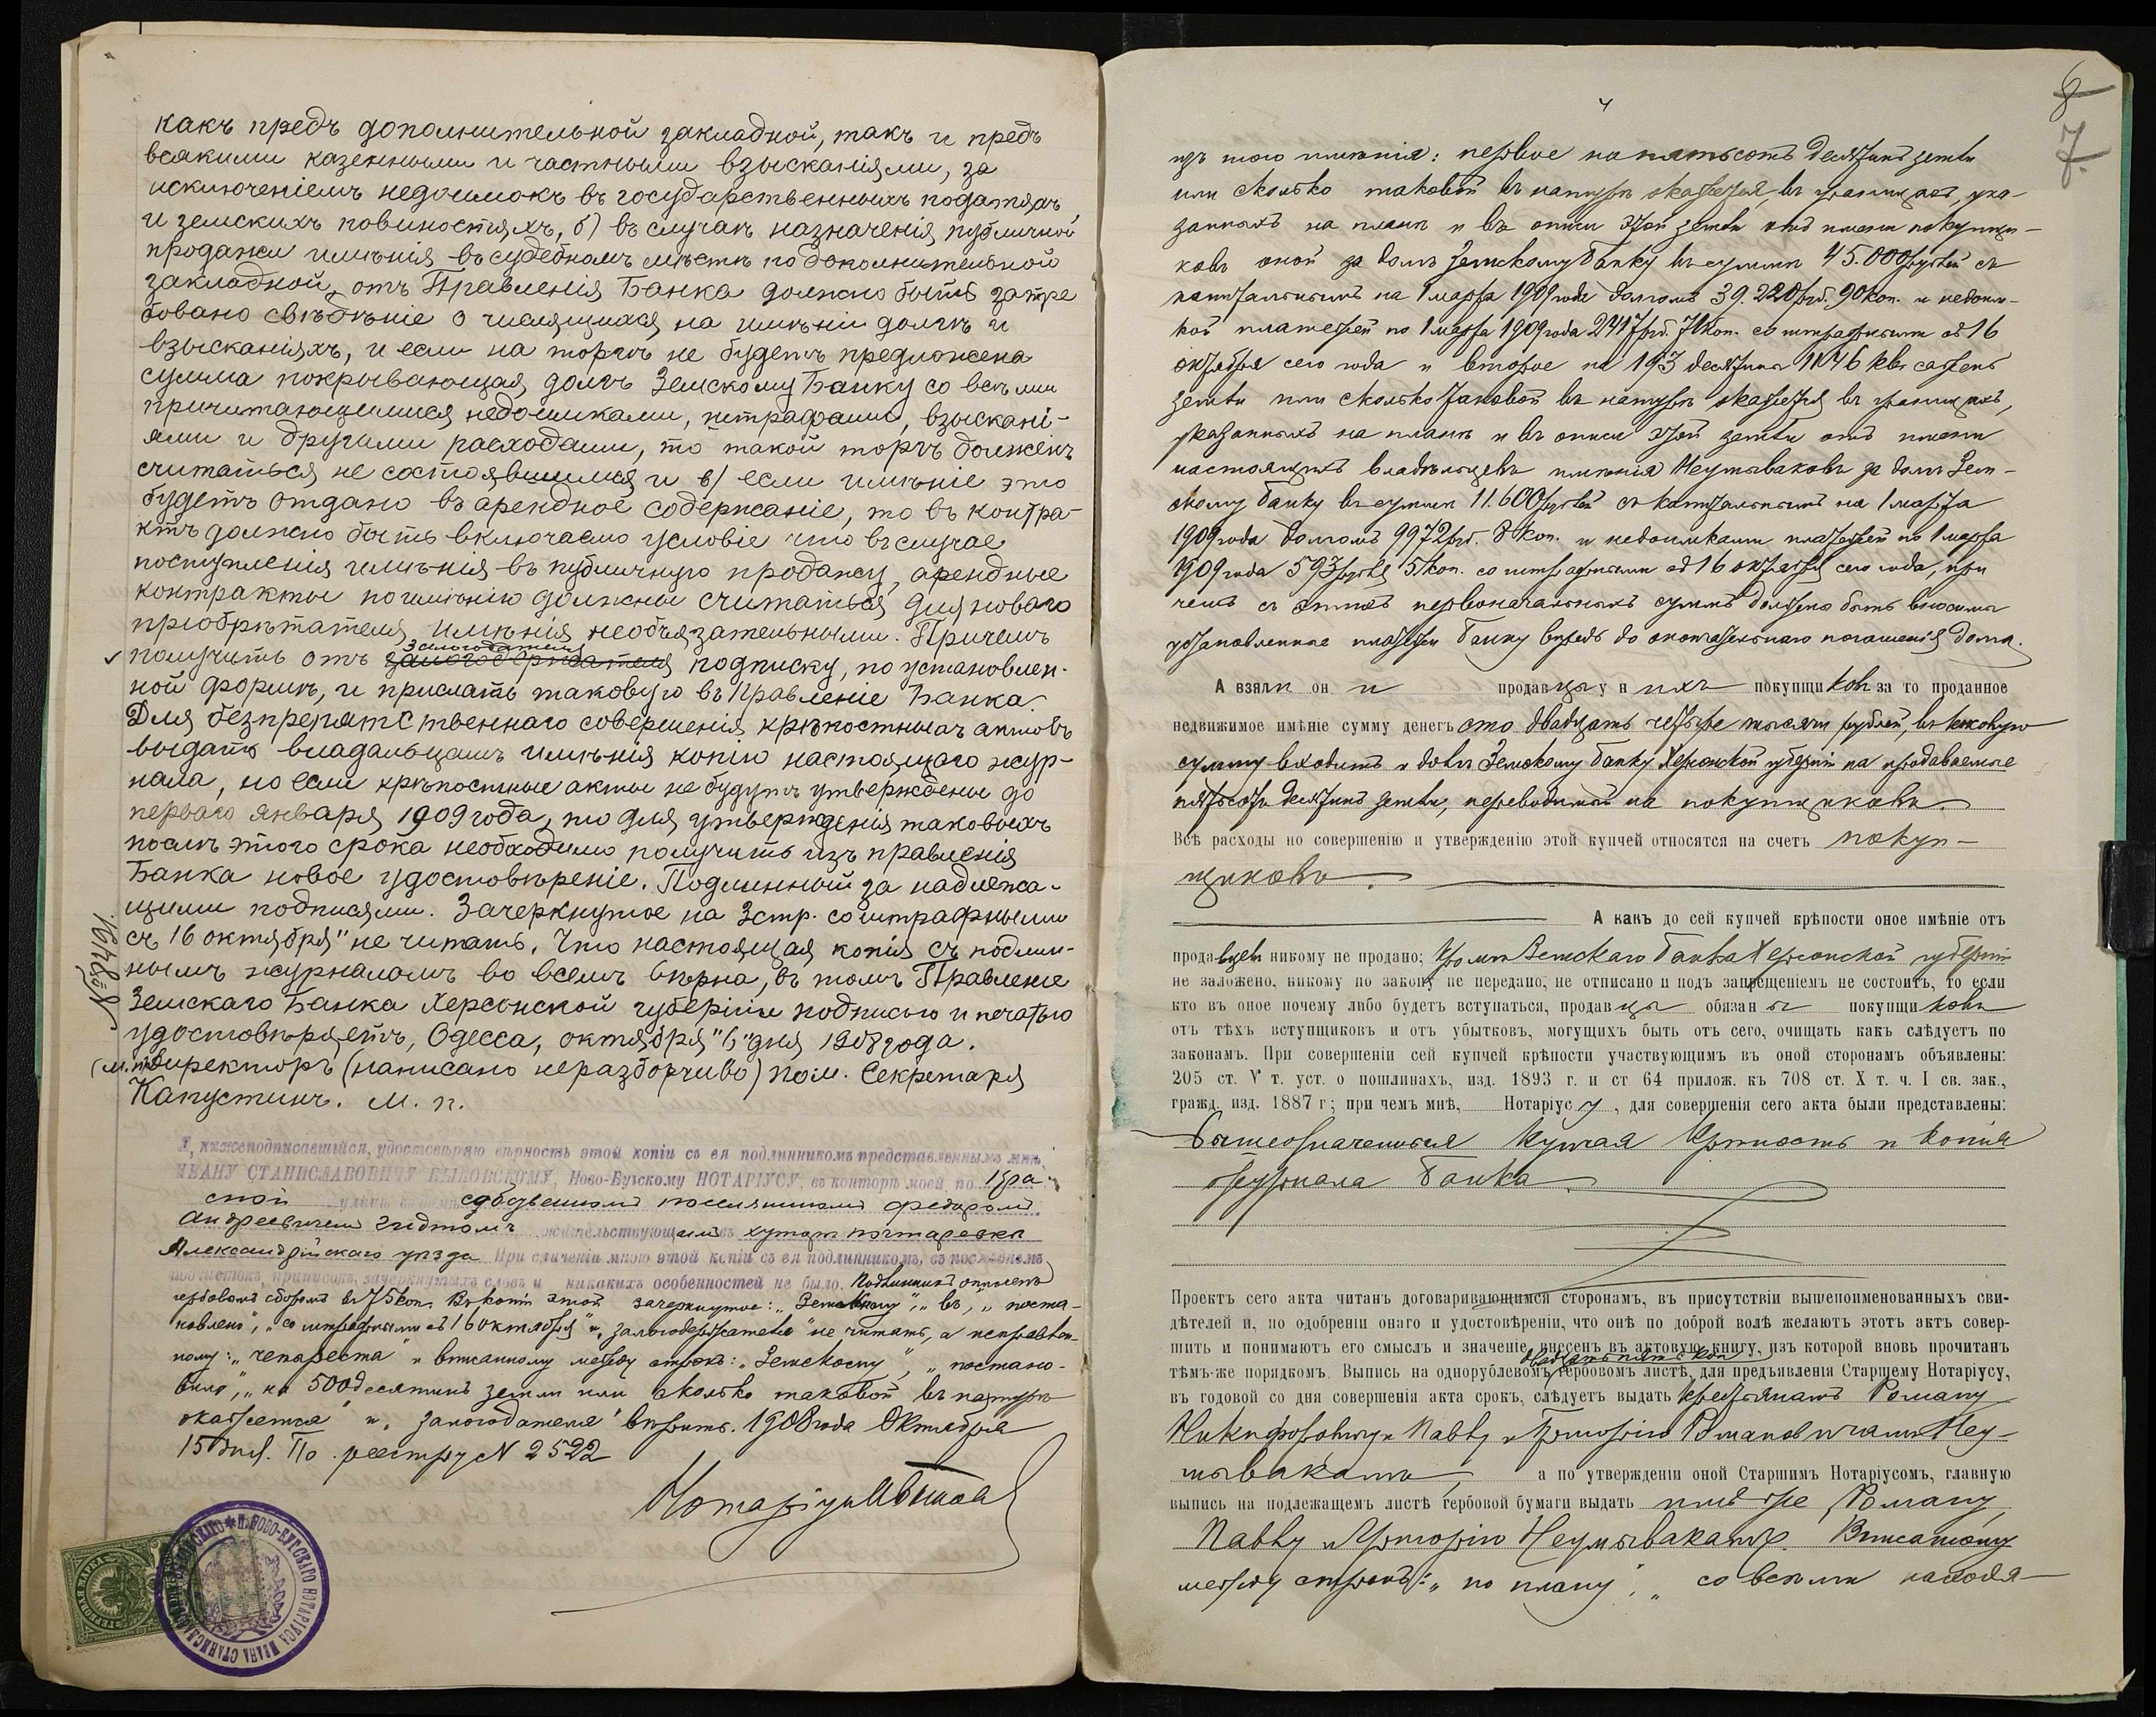 какъ предъ дополнительной закладной, такъ и предъ
всякими казенными и частными взысканіями, за
исключеніемъ недоимокъ въ государственныхъ податяхъ
и земскихъ повиностяхъ, б) въ случаѣ назначенія публичной
продажи имѣнія въ судебномъ мѣстѣ по дополнительной
закладной, отъ Правленія Банка должно быть затре
бовано свѣдѣніе о числящихся на имѣніи долгѣ и
взысканіяхъ, и если на торгѣ не будетъ предложена
сумма покрывающая долгъ Земскому Банку со всѣми
причитающимися недоимками, штрафами, взыскані-
ями и другими расходами, то такой торгъ долженъ
считаться не состоявшимся и в) если имѣніе это
будетъ отдано въ арендное содержаніе, то въ контра-
ктъ должно быть включаемо условіе что въ случае
поступленія имѣнія въ публичную продажу, арендные
контракты по имѣнію должны считаться для новаго
пріобрѣтателя имѣнія необъязательными. Причемъ
залогодателя
получить отъ залогодержателя подписку, по установлен-
ной формѣ, и прислать таковую въ Правленіе Банка.
Для безпрепятственнаго совершенія крѣпостныхъ актовъ
выдать владѣльцамъ имѣнія копію настоящаго жур-
нала, но если крѣпостные акты не будутъ утверждены до
перваго января 1909 года, то для утвержденія таковыхъ
послѣ этого срока необходимо получить изъ правленія
Банка новое удостовѣреніе. Подлинный за надлежа-
щими подписями. Зачеркнутое на 3 стр. со штрафными
съ 16 октября" не читать. Что настоящая копія съ подлин-
нымъ журналомъ во всемъ вѣрна, въ томъ Правленіе
Земскаго Банка Херсонской губерніи подписью и печатью
удостовѣряетъ, Одесса, октября "6" дня 1908 года.
Директоръ (написано неразборчиво) пом. Секретаря
Капустинъ. М. п.
№ 87491.
Я, нижеподписавшійся, удостовѣряю вѣрность этой копіи съ ея подлинникомъ представленнымъ мнѣ,
ИВАНУ СТАНИСЛАВОВИЧУ БЫКОВСКОМУ, Ново-Бугскому НОТАРІУСУ, въ конторѣ моей, по
собственникомъ поселяниномъ Федоромъ
Андреевичемъ жительствующимъ въ хуторѣ
Александрійскаго уѣзда При сличеніи мною этой копіи съ ея подлинникомъ, въ послѣднемъ
подчистокъ, приписокъ, зачеркнутыхъ словъ и никакихъ особенностей не было. Подлинникъ оплоченъ
гербовымъ сборомъ въ 75 коп. Въ копіи этой зачеркнутое: "Земскому", "въ", "поста-
новлено", "со штрафными съ 16 октября" и "залогодержателя" не читать, а исправлен-
ному: и вписанному между строкъ: "Земскому", "постано-
вило", "на 500 десятинъ земли или сколько таковой въ натурѣ
окажется" и "залогодателя" вѣрить. 1908 года Октября
15 дня. По реестру N 2522
Нотаріусъ
ГЕРБОВАЯ МАРКА
НОВО-БУГСКАГО НОТАРІУСА ИВАНА СТАНИСЛАВОВИЧА БЫКОВСКАГО
4
6
7
изъ того имѣнія: первое на пятьсотъ десятинъ земли
или сколько таковой въ натурѣ окажется, въ границахъ, ука-
занныхъ на планѣ и въ описи этой земли отъ имени покупщи-
ковъ оной за долгъ Земскому Банку въ суммѣ 45.000 рублей съ
капитальнымъ на 1 марта 1909 года долгомъ 39.220 руб. 90 коп. и недоим-
кой платежей по 1 марта 1909 года 2417 руб. коп. со штрафными съ 16
октября сего года и второе на 193 десятины 1146 кв. сажень
земли или сколько таковой въ натурѣ окажется въ границахъ,
указанныхъ на планѣ и въ описи этой земли отъ имени
настоящихъ владѣльцевъ имѣнія Неумываковъ за долгъ Зем-
скому Банку въ суммѣ 11.600 рублей съ капитальнымъ на 1 марта
1909 года долгомъ 9972 руб. 8 коп. и недоимками платежей по 1 марта
1909 года 593 рубля 5 коп. со штрафными съ 16 октября сего года, при
чемъ съ этихъ первоначальныхъ суммъ должны быть вносимы
установленные платежи Банку впредь до окончательнаго погашенія долга.
А взяли он и продавцы у нихъ покупщиковъ за то проданное
недвижимое имѣніе сумму денегъ сто двадцать четыре тысячи рублей, въ каковую
сумму входитъ и долгъ Земскому Банку Херсонской губерніи на продаваемые
пятьсотъ десятинъ земли, переводимый на покупщиковъ.
Всѣ расходы по совершенію и утвержденію этой купчей относятся на счетъ покуп-
щиковъ.
А какъ до сей купчей крѣпости оное имѣніе отъ
продавцевъ никому не продано; кромѣ Земскаго Банка Херсонской губерніи
не заложено, никому по закону не передано, не отписано и подъ запрещеніемъ не состоитъ, то если
кто въ оное почему либо будетъ вступаться, продавцы обязаны покупщиковъ
отъ тѣхъ вступщиковъ и отъ убытковъ, могущихъ быть отъ сего, очищать какъ слѣдуетъ по
законамъ. При совершеніи сей купчей крѣпости участвующимъ въ оной сторонамъ объявлены:
205 ст. V т. уст. о пошлинахъ, изд. 1893 г. и ст 64 прилож. къ 708 ст. X т. ч. I св. зак.,
гражд. изд. 1887 г; при чемъ мнѣ, Нотаріусу, для совершенія сего акта были представлены:
вышеозначенныя купчая крѣпость и копія
журнала Банка.
Проектъ сего акта читанъ договаривающимся сторонамъ, въ присутствіи вышепоименованныхъ сви-
дѣтелей и, по одобреніи онаго и удостовѣреніи, что онѣ по доброй волѣ желаютъ этотъ актъ совер-
шить и понимаютъ его смыслъ и значеніе, внесенъ въ актовую книгу, изъ которой вновь прочитанъ
двадцать пять коп
тѣмъ-же порядкомъ. Выпись на однорублевомъ гербовомъ листѣ, для предъявленія Старшему Нотаріусу,
въ годовой со дня совершенія акта срокъ, слѣдуетъ выдать крестьянамъ Роману
Никифоровичу, Павлу и Григорію Романовичамъ Неу-
мывакамъ, а по утвержденіи оной Старшимъ Нотаріусомъ, главную
выпись на подлежащемъ листѣ гербовой бумаги выдать имъ же, Роману,
Павлу и Григорію Неумывакамъ. Вписанному
между строкъ: "по плану", "со всѣми находя-